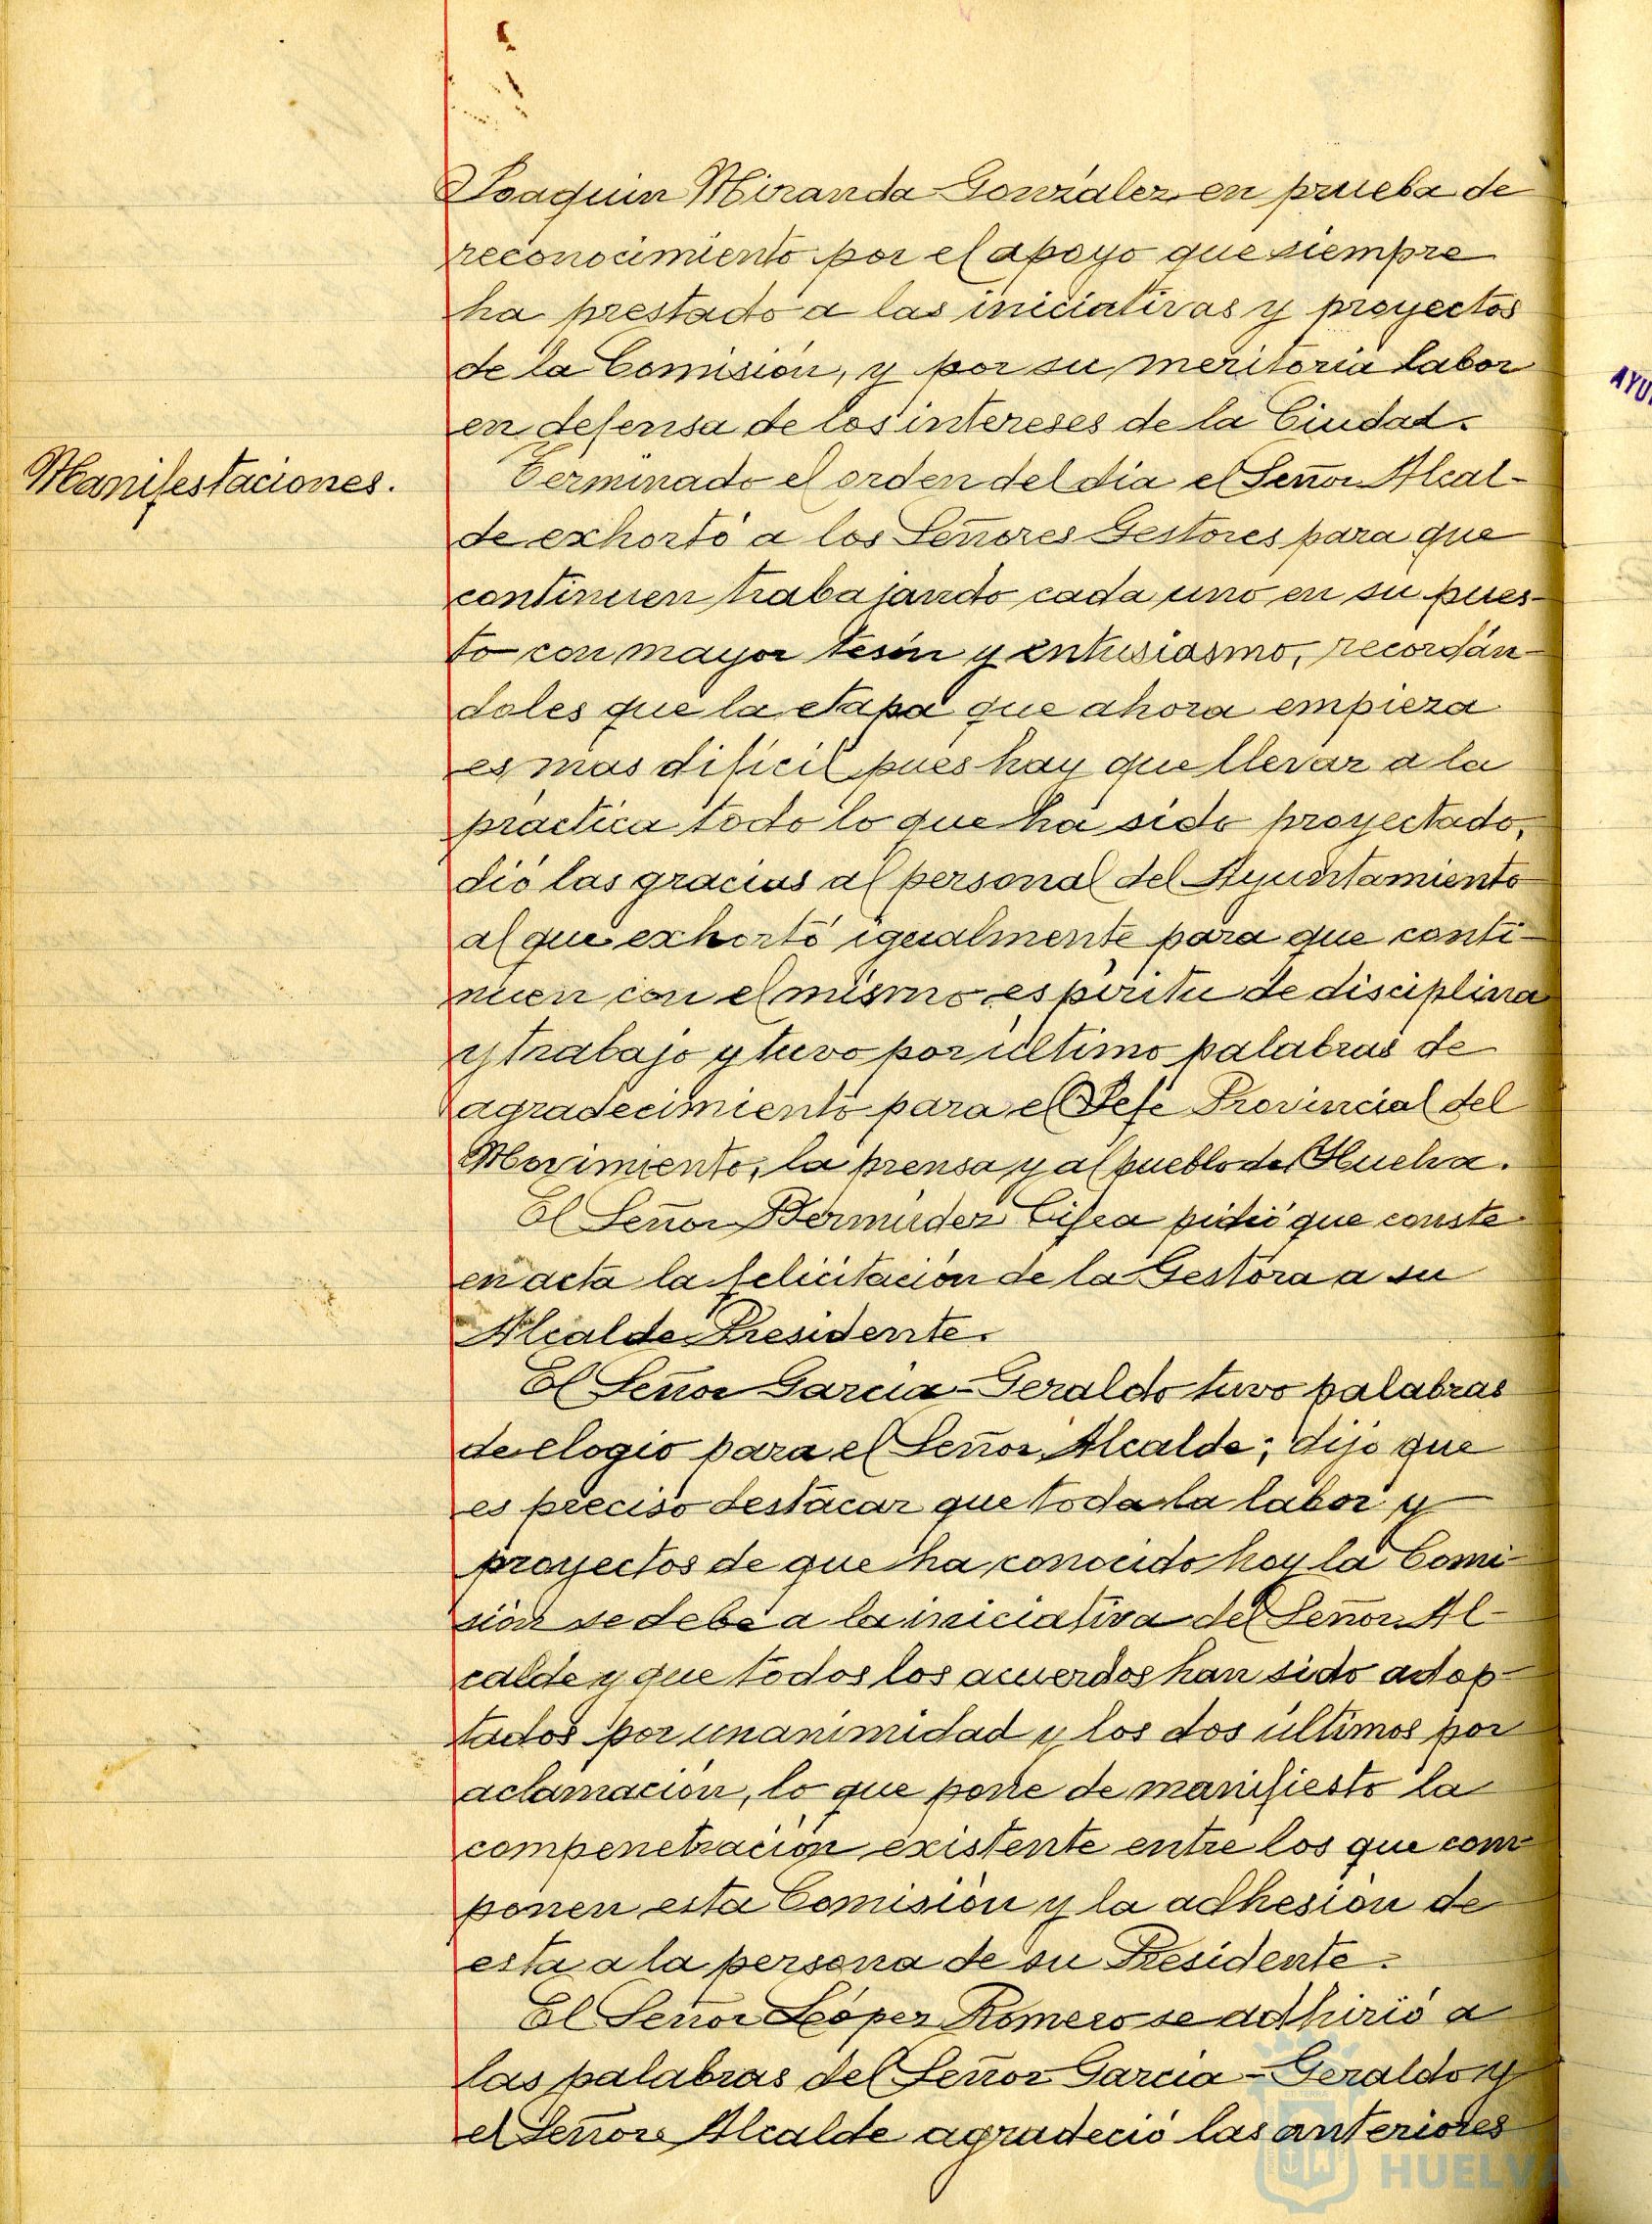 Joaquin Miranda González en prueba de
reconocimiento por el apoyo que siempre
ha prestado a las iniciativas y proyectos
de la Comisión, y por su meritoria labor
en defensa de los intereses de la Ciudad.
Manifestaciones.
Terminado el orden del dia el Señor Alcal-
de exhortó a los Señores Gestores para que
continuen trabajando cada uno en su pues-
to con mayor tesón y entusiasmo, recordán-
doles que la etapa que ahora empieza
es mas dificil pues hay que llevar a la
práctica todo lo que ha sido proyectado,
dió las gracias al personal del Ayuntamiento
al que exhortó igualmente para que conti-
nuen con el mismo espíritu de disciplina
y trabajo y tuvo por último palabras de
agradecimiento para el Jefe Provincial del
Movimiento, la prensa y al pueblo de Huelva.
El Señor Bermúdez Cifea pidió que conste
en acta la felicitación de la Gestora a su
Alcalde Presidente.
El Señor Garcia-Geraldo tuvo palabras
de elogio para el Señor Alcalde; dijo que
es preciso destacar que toda la labor y
proyectos de que ha conocido hoy la Comi-
sión se debe a la iniciativa del Señor Al-
calde y que todos los acuerdos han sido adop-
tados por unanimidad y los dos últimos por
aclamación, lo que pone de manifiesto la
compenetración existente entre los que com-
ponen esta Comisión y la adhesión de
esta a la persona de su Presidente.
El Señor López Romero se adhirió a
las palabras del Señor Garcia-Geraldo y
el Señor Alcalde agradeció las anteriores
HUELVA
AYU